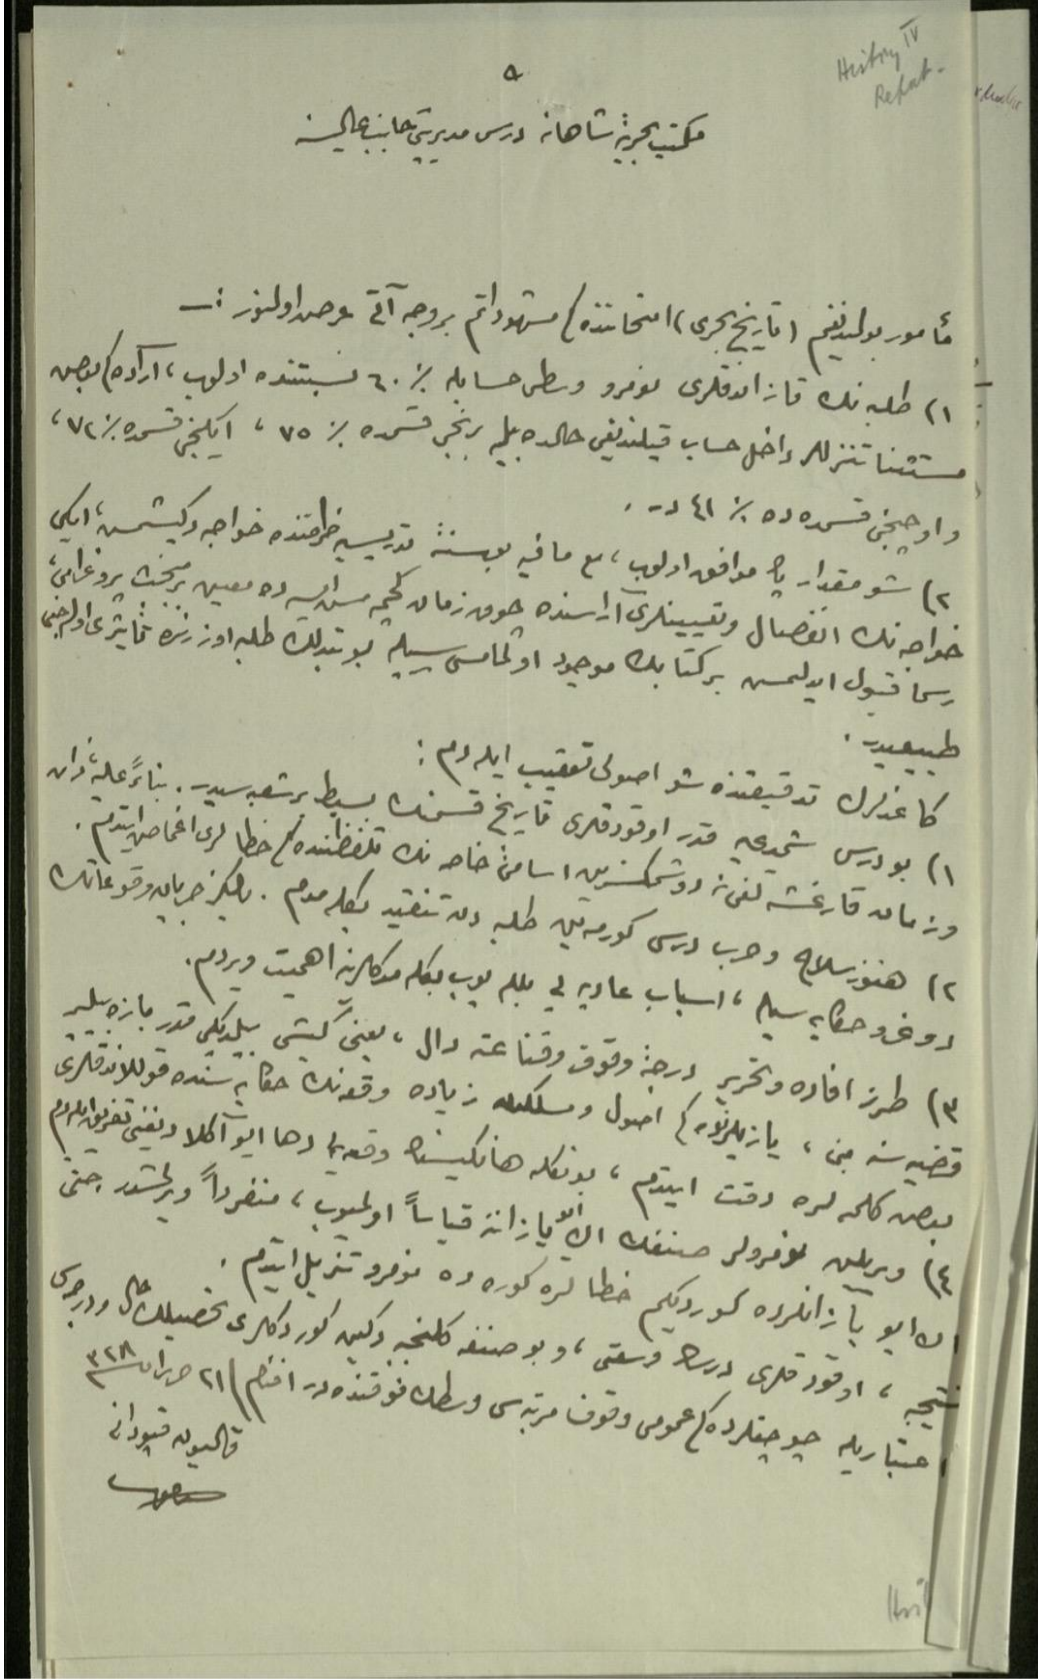 History IV
Report.
٥
مكتب بحريۀ شاهانه درس مديريتى جانب عاليسنه
مأمور بولنديغم (تاريخ بحرى) امتحاننده كى مشهوداتم بروجه آتى عرض اولنور :ـ
١) طلبه نك قازاندقلرى نومرو وسطى حسابله ٪ ٦٠ نسبتنده اولوب، آراده كى بعض
مستثنا تنزللر داخل حساب قيلنديغى حالده بيله برنجى قسمده ٪ ٧٥ ، ايكنجى قسمده ٪ ٧٢ ،
و اوچنجى قسمده ده ٪ ٤١ در .
٢) شو مقدار موافق اولوب، مع ما فيه بو سنۀ تدريسيه ظرفنده خواجه دكيشمسى، ايكى
خواجه نك انفصال و تعيينلرى آراسنده چوق زمان كچمسى معين بر پروغرامى،
رسما قبول ايدلمش بر كتابك موجود اولمامسى بو تبدلك طلبه اوزرنده تأثيرى اولماسى
طبيعيدر .
كاغدلرك تدقيقنده شو اصولى تعقيب ايله دم :
١) بو درس شمدى يه قدر اوقودقلرى تاريخ قسمنك بسيط بر شعبه سيدر. بناءً عليه، ذات
و زمان اسامئ خاصه نك تلفظنده كى خطالرى اغماض ايتدم .
٢) هنوز سلاح و حرب درسى كورمه ين طلبه دن تنقيد بكله مدم . يالكز جريان وقوعاتك
دوغرو حكايه سيله ، اسباب عاديه يى اهميت ويردم .
٣) طرز افاده و تحرير درجۀ وقوف و قناعته دال ، يعنى كيشى بيلديكى قدر يازه بيلير
قضيه سنه مبنى ، يازيلرنده كى اصول و مسلكله زياده وقعه نك حكايه سنده قوللاندقلرى
بعض كلمه لره دقت ايتدم ، بونكله هانكيسنك وقعه يى دها ايى آكلاديغنى تفريق ايله دم
٤) ويريلن نومرولر صنفك اڭ ايى يازاننه قياساً اولميوب ، منفرداً ويرلمشدر . حتى
اڭ ايى يازانلرده كورديكم خطالره كوره ده نومرو تنزيل ايتدم .
نتيجه ، اوقودقلرى درسك وسعتى ، و بو صنفه كلنجه يه دكين كوردكلرى تحصيلك حال و درجه سى
اعتباريله چوجقلرده كى عمومى وقوف مرتبه سى وسطك فوقنده در افندم ٢١ حزيران سنه ٣٢٨
قاليون قپودانى